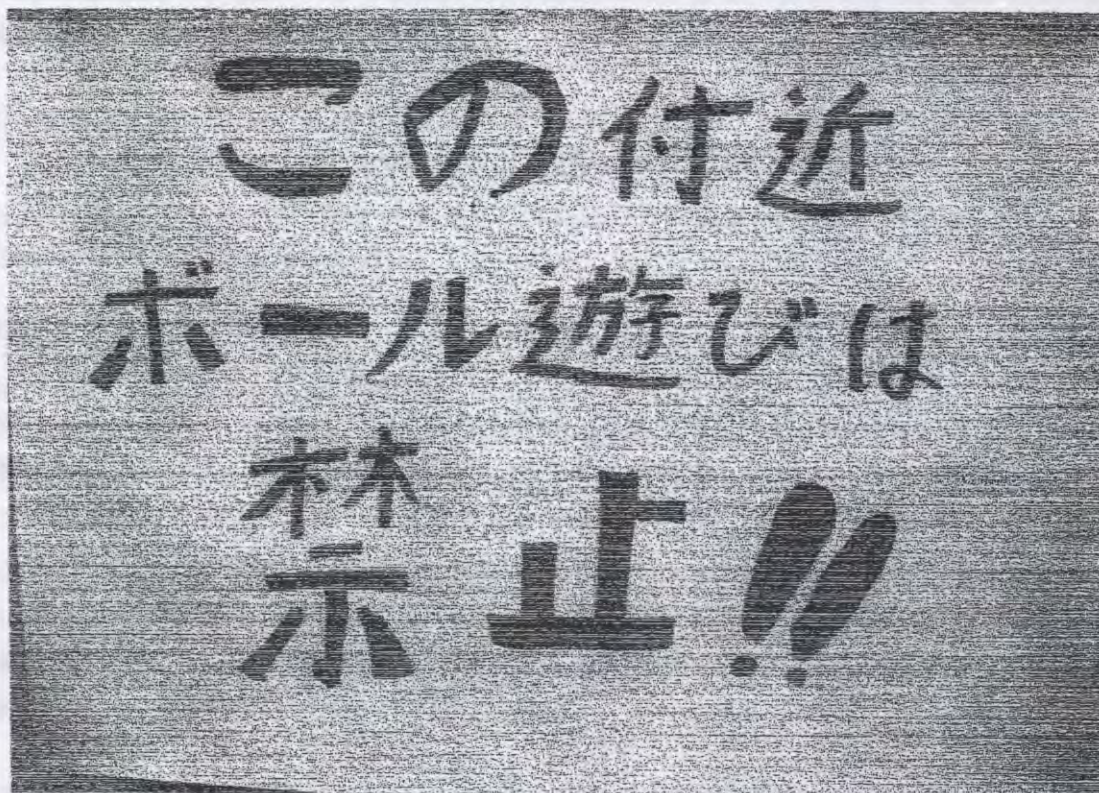 この付近
ボール遊びは
禁止!!